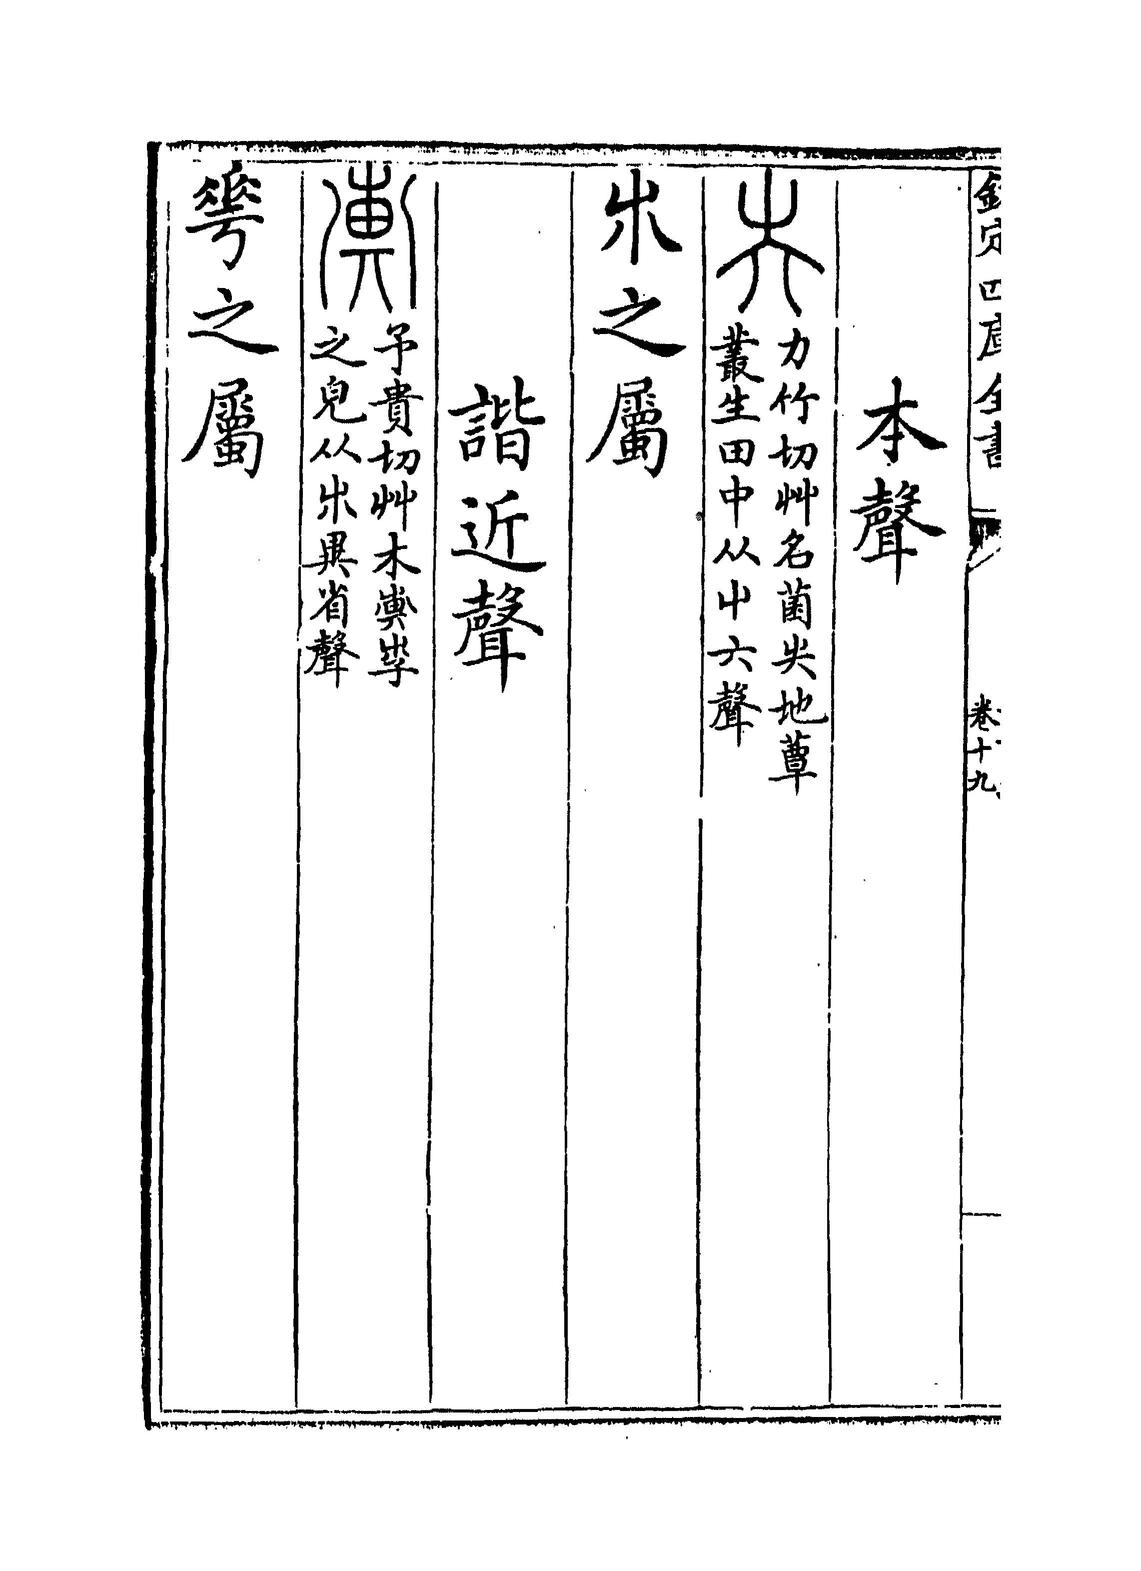 欽定四庫全書
卷十九
本聲
力竹切艸名菌𡴆地蕈
叢生田中从屮六聲
𣎵之屬
諧近聲
予貴切艸木㚕孛
之皃从𣎵畀省聲
𠌶之屬